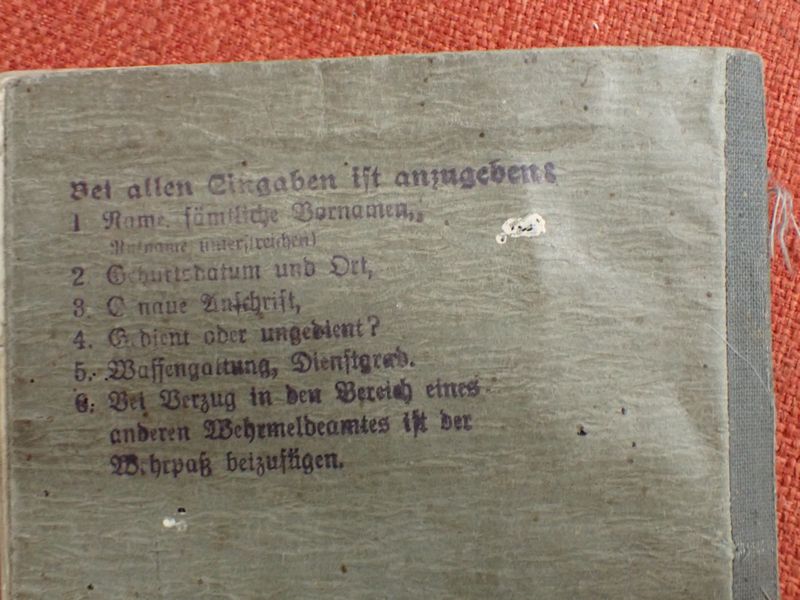 Bei allen Eingaben ist anzugeben:
1 Name, sämtliche Vornamen,
Rufname unterstreichen)
2 Geburtsdatum und Ort,
3. G naue Anschrift,
4. G.dient oder ungedient?
5. Waffengattung, Dienstgrad.
6. Bei Verzug in den Bereich eines
anderen Wehrmeldeamtes ist der
W.hrpaß beizufügen.